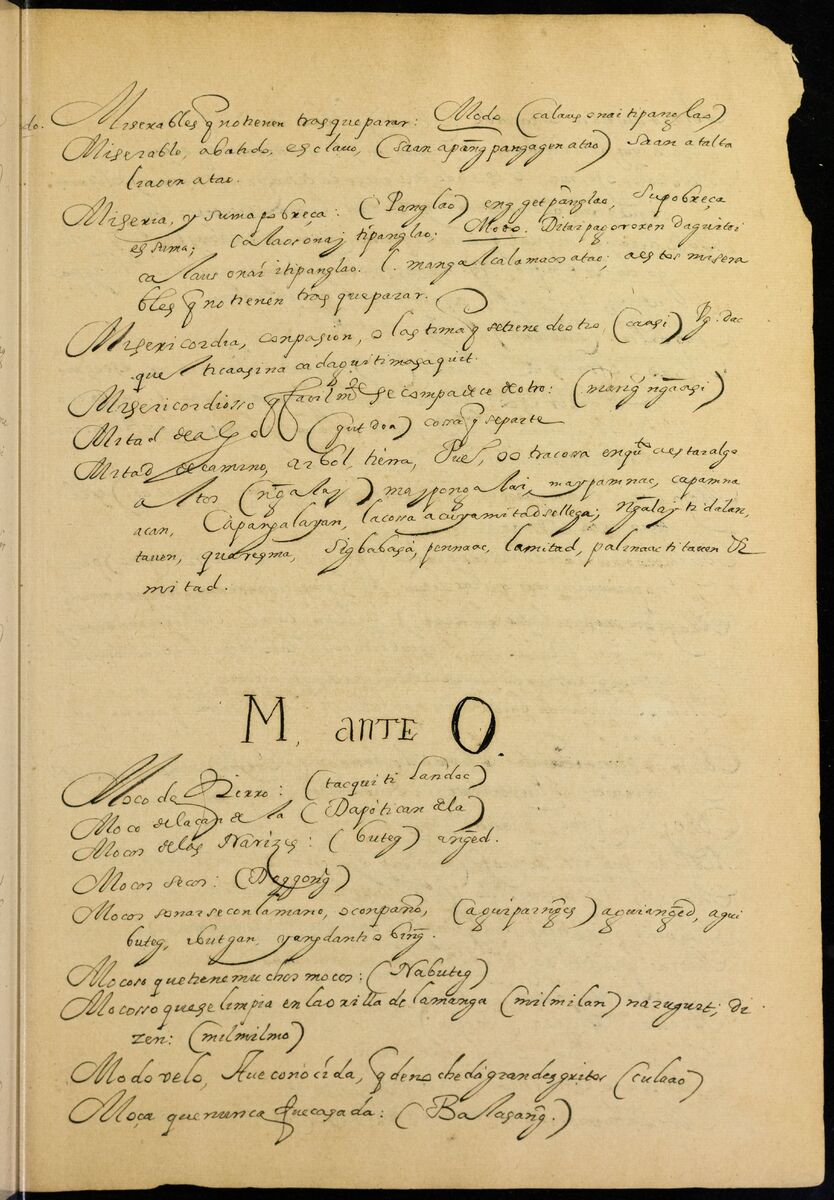 do.
Miserables q̃ no tienen tras que parar: Modo (calaus onai tipanglao)
Miserable, abatido, esclavo, (saan apang̃ pangagen atao) saan atalta
liaoen atao.
Miseria, y suma pobreça: (Panglao) eng̃get pang̃lao, su pobreça
es suma; calaos onaj tipanglao; Modo. Ditaipagororen daguitoi
calaus onai itipanglao. l. mangalcalamaos atao; aestos misera
bles q̃ no tienen tras que parar.
Misericordia, conpasion, o lastima q̃ se tiene de otro (caasi) Pg: dac
que ticaasina cadaguitimasaquit.
Misericordiosso q̃ facilm.te se compadece de otro: (mang̃ ng̃aasi)
Mitad de algo (gudoa) cossa q̃ se parte
Mitad de camino, arbol, tierra, Pues, o otra cossa en q.to aestar algo
altos (ng̃alay) maypong̃alai, maypamnac, capamna
acan, Capang̃alayan, lacossa acuya mitad se llega; ng̃alaj ti dalan,
tauen, quaresma, sigbabasa, pennaac, la mitad, palnaac ti tauen De
mitad.
M, ANTE O.
Moco de Fierro: (tacqui ti Landoc)
Moco de la candela (Dapòtican dela)
Mocos de las Narizes: (buteg) ang̃ed.
Mocos secos: (Deggong̃)
Mocos sonarse con la mano, o con paño, (aguiparing̃es) aguiang̃ed, agui
buteg, ibutgan, yang̃danti o bing̃.
Mocoso que tiene muchos mocos: (Nabuteg)
Mocosso que se limpia en la orilla de la manga (milmilan) narugurt; di
zen: (milmilmo)
Modovelo, Aue conocida, q̃ de noche dà grandes gritos (culaao)
Moça que nunca fue casada: (Balasang̃.)